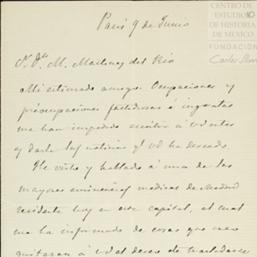 CENTRO DE
ESTUDIOS
DE HISTORIA
DE MEXICO
FUNDACIÓN
Carlos Slim
Paris 9 de Junio
S. Dn. M. Martinez del Rio
Mi estimado amigo: Ocupaciones y
preocupaciones fastidiosas é ingratas
me han impedido escribir á Vd antes
y darle las noticias q' Vd ha deseado.
He visto y hablado á una de las
mayores eminencias medicas de Madrid
residente hoy en esta capital, el cual
me ha informado de cosas que
quitarán á Vd el deseo de trasladarse